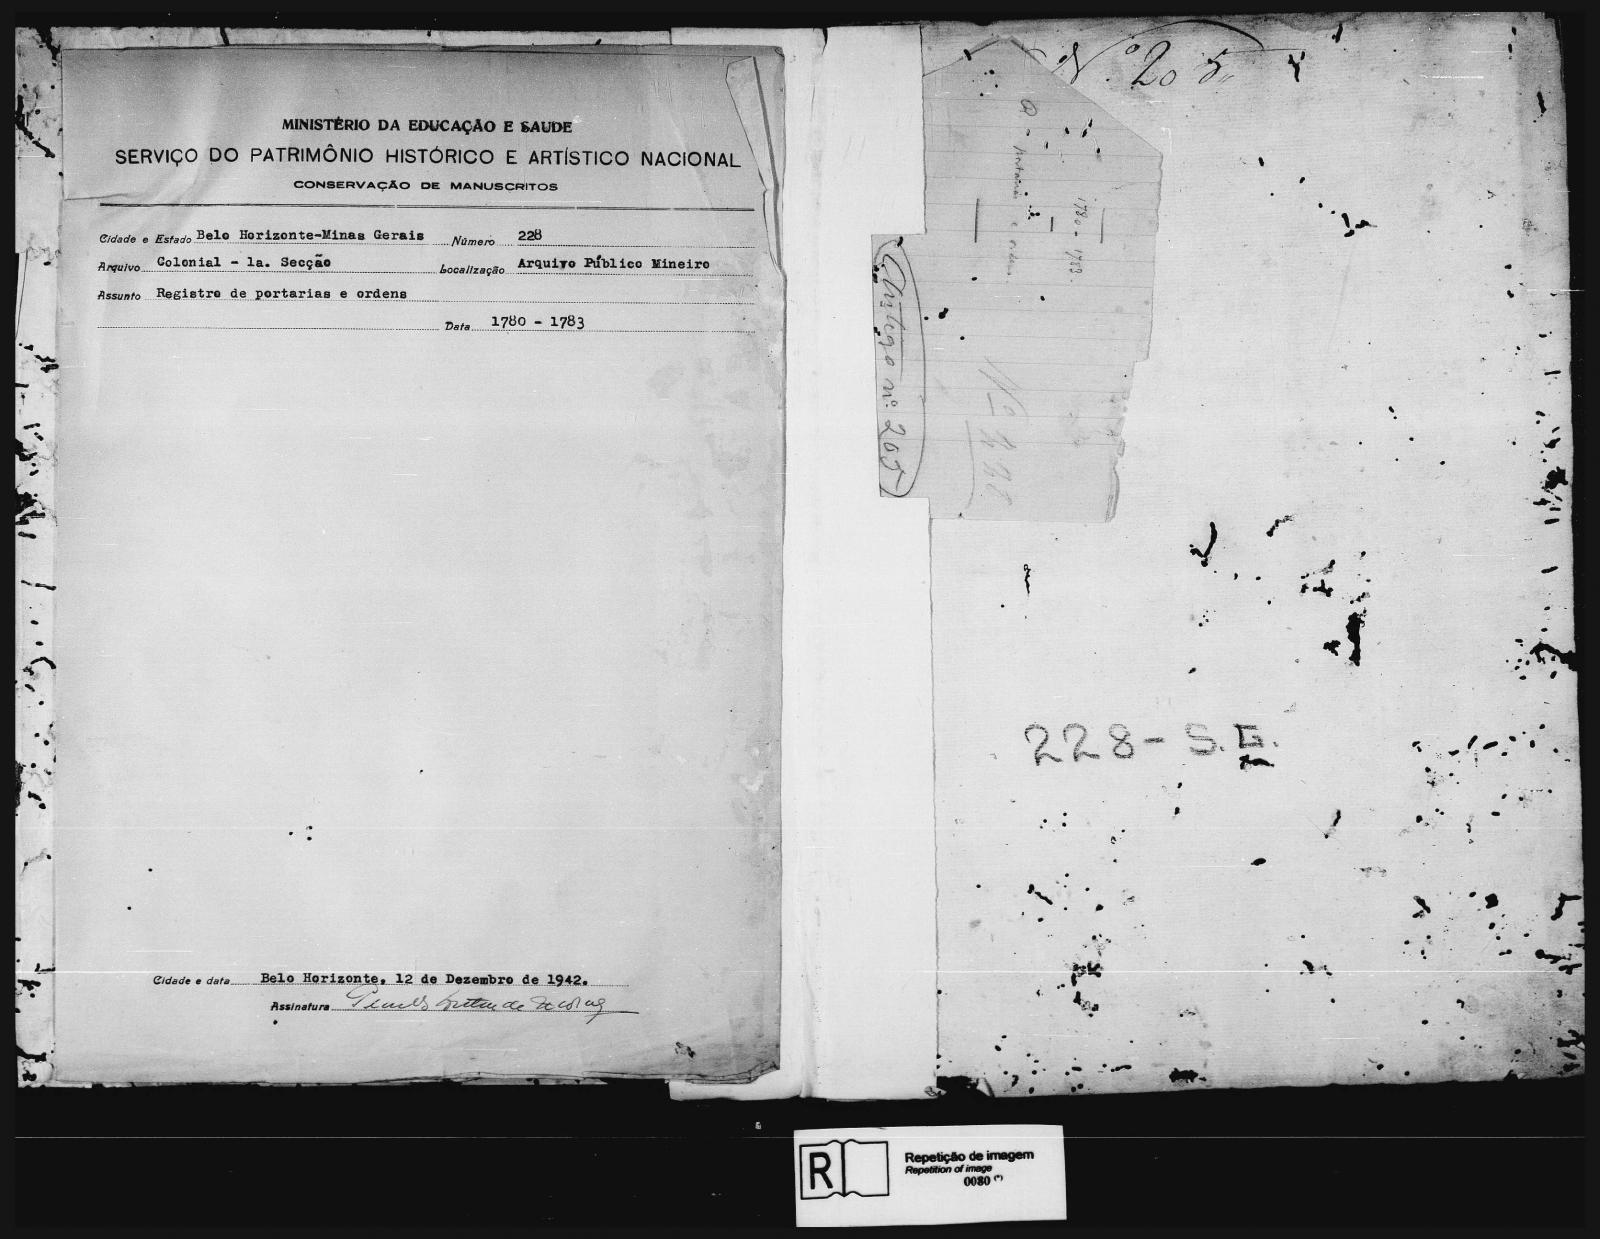 MINISTÉRIO DA EDUCAÇÃO E SAUDE
SERVIÇO DO PATRIMÔNIO HISTÓRICO E ARTÍSTICO NACIONAL
CONSERVAÇÃO DE MANUSCRITOS
Cidade e Estado Belo Horizonte-Minas Gerais Número 228
Arquivo Colonial - 1a. Secção Localização Arquivo Público Mineiro
Assunto Registro de portarias e ordens
Data 1780 - 1783
Cidade e data Belo Horizonte, 12 de Dezembro de 1942.
Assinatura
Nº 205
1780 - 1783.
portarias e ordens
Nº 228
Antigo nº 205
228 - S.G.
R
Repetição de imagem
Repetition of image
0080 (*)